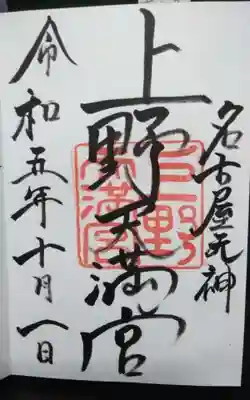 名古屋天神
上野天満宮
上野天満宮
令和五年十月一日